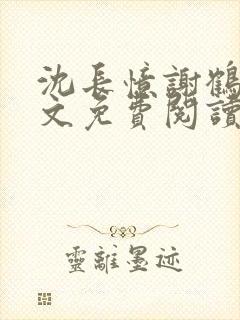 沈長憶謝鶴
文免費閱讀
靈離墨迹